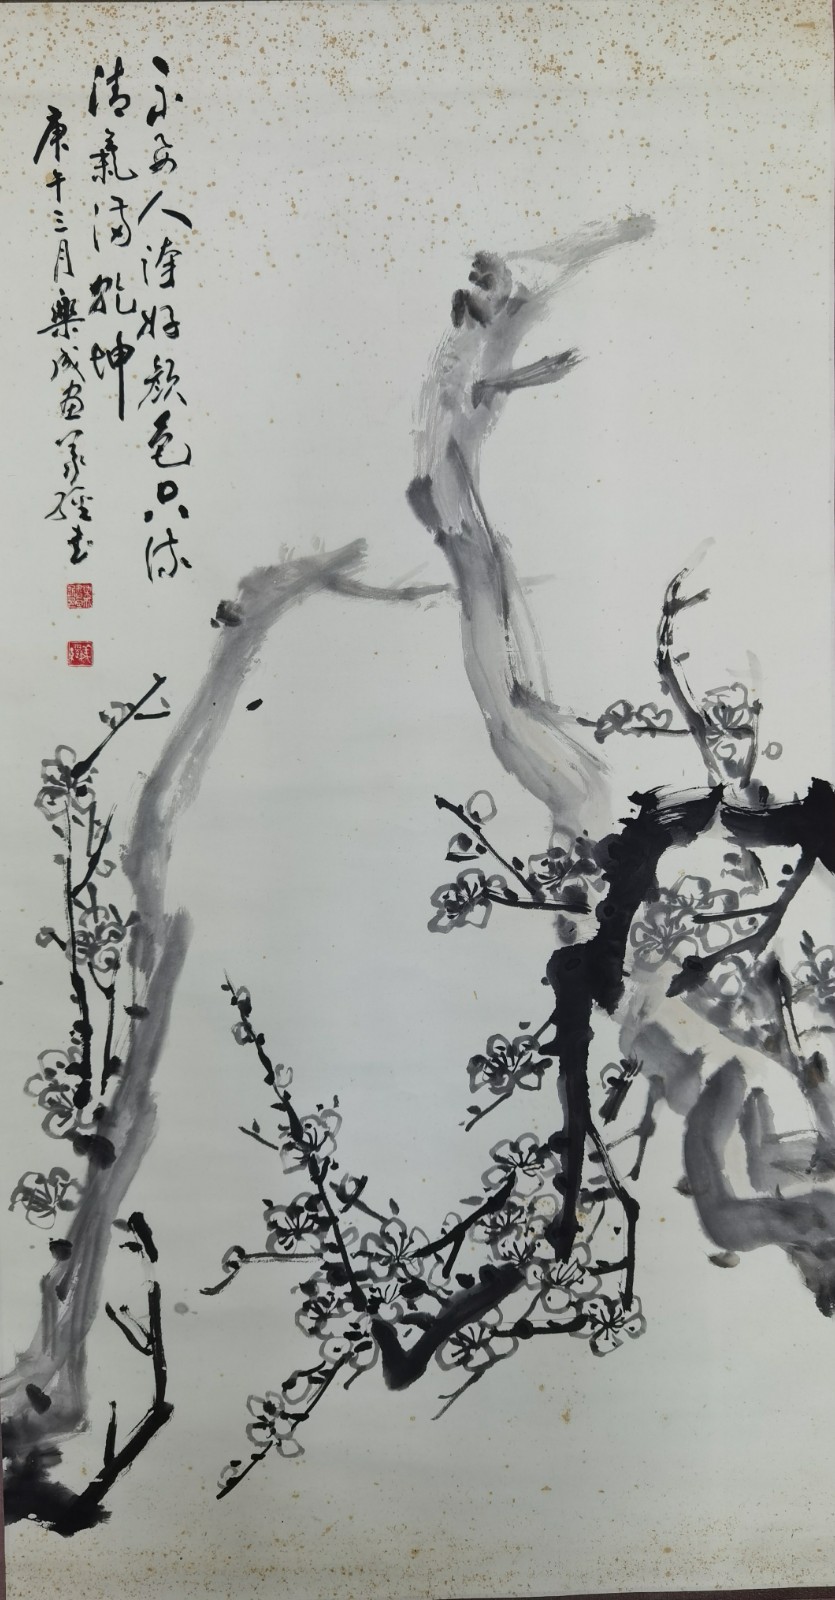 不要人誇好顏色只流
清氣滿乾坤
庚午三月樂成畫義經書